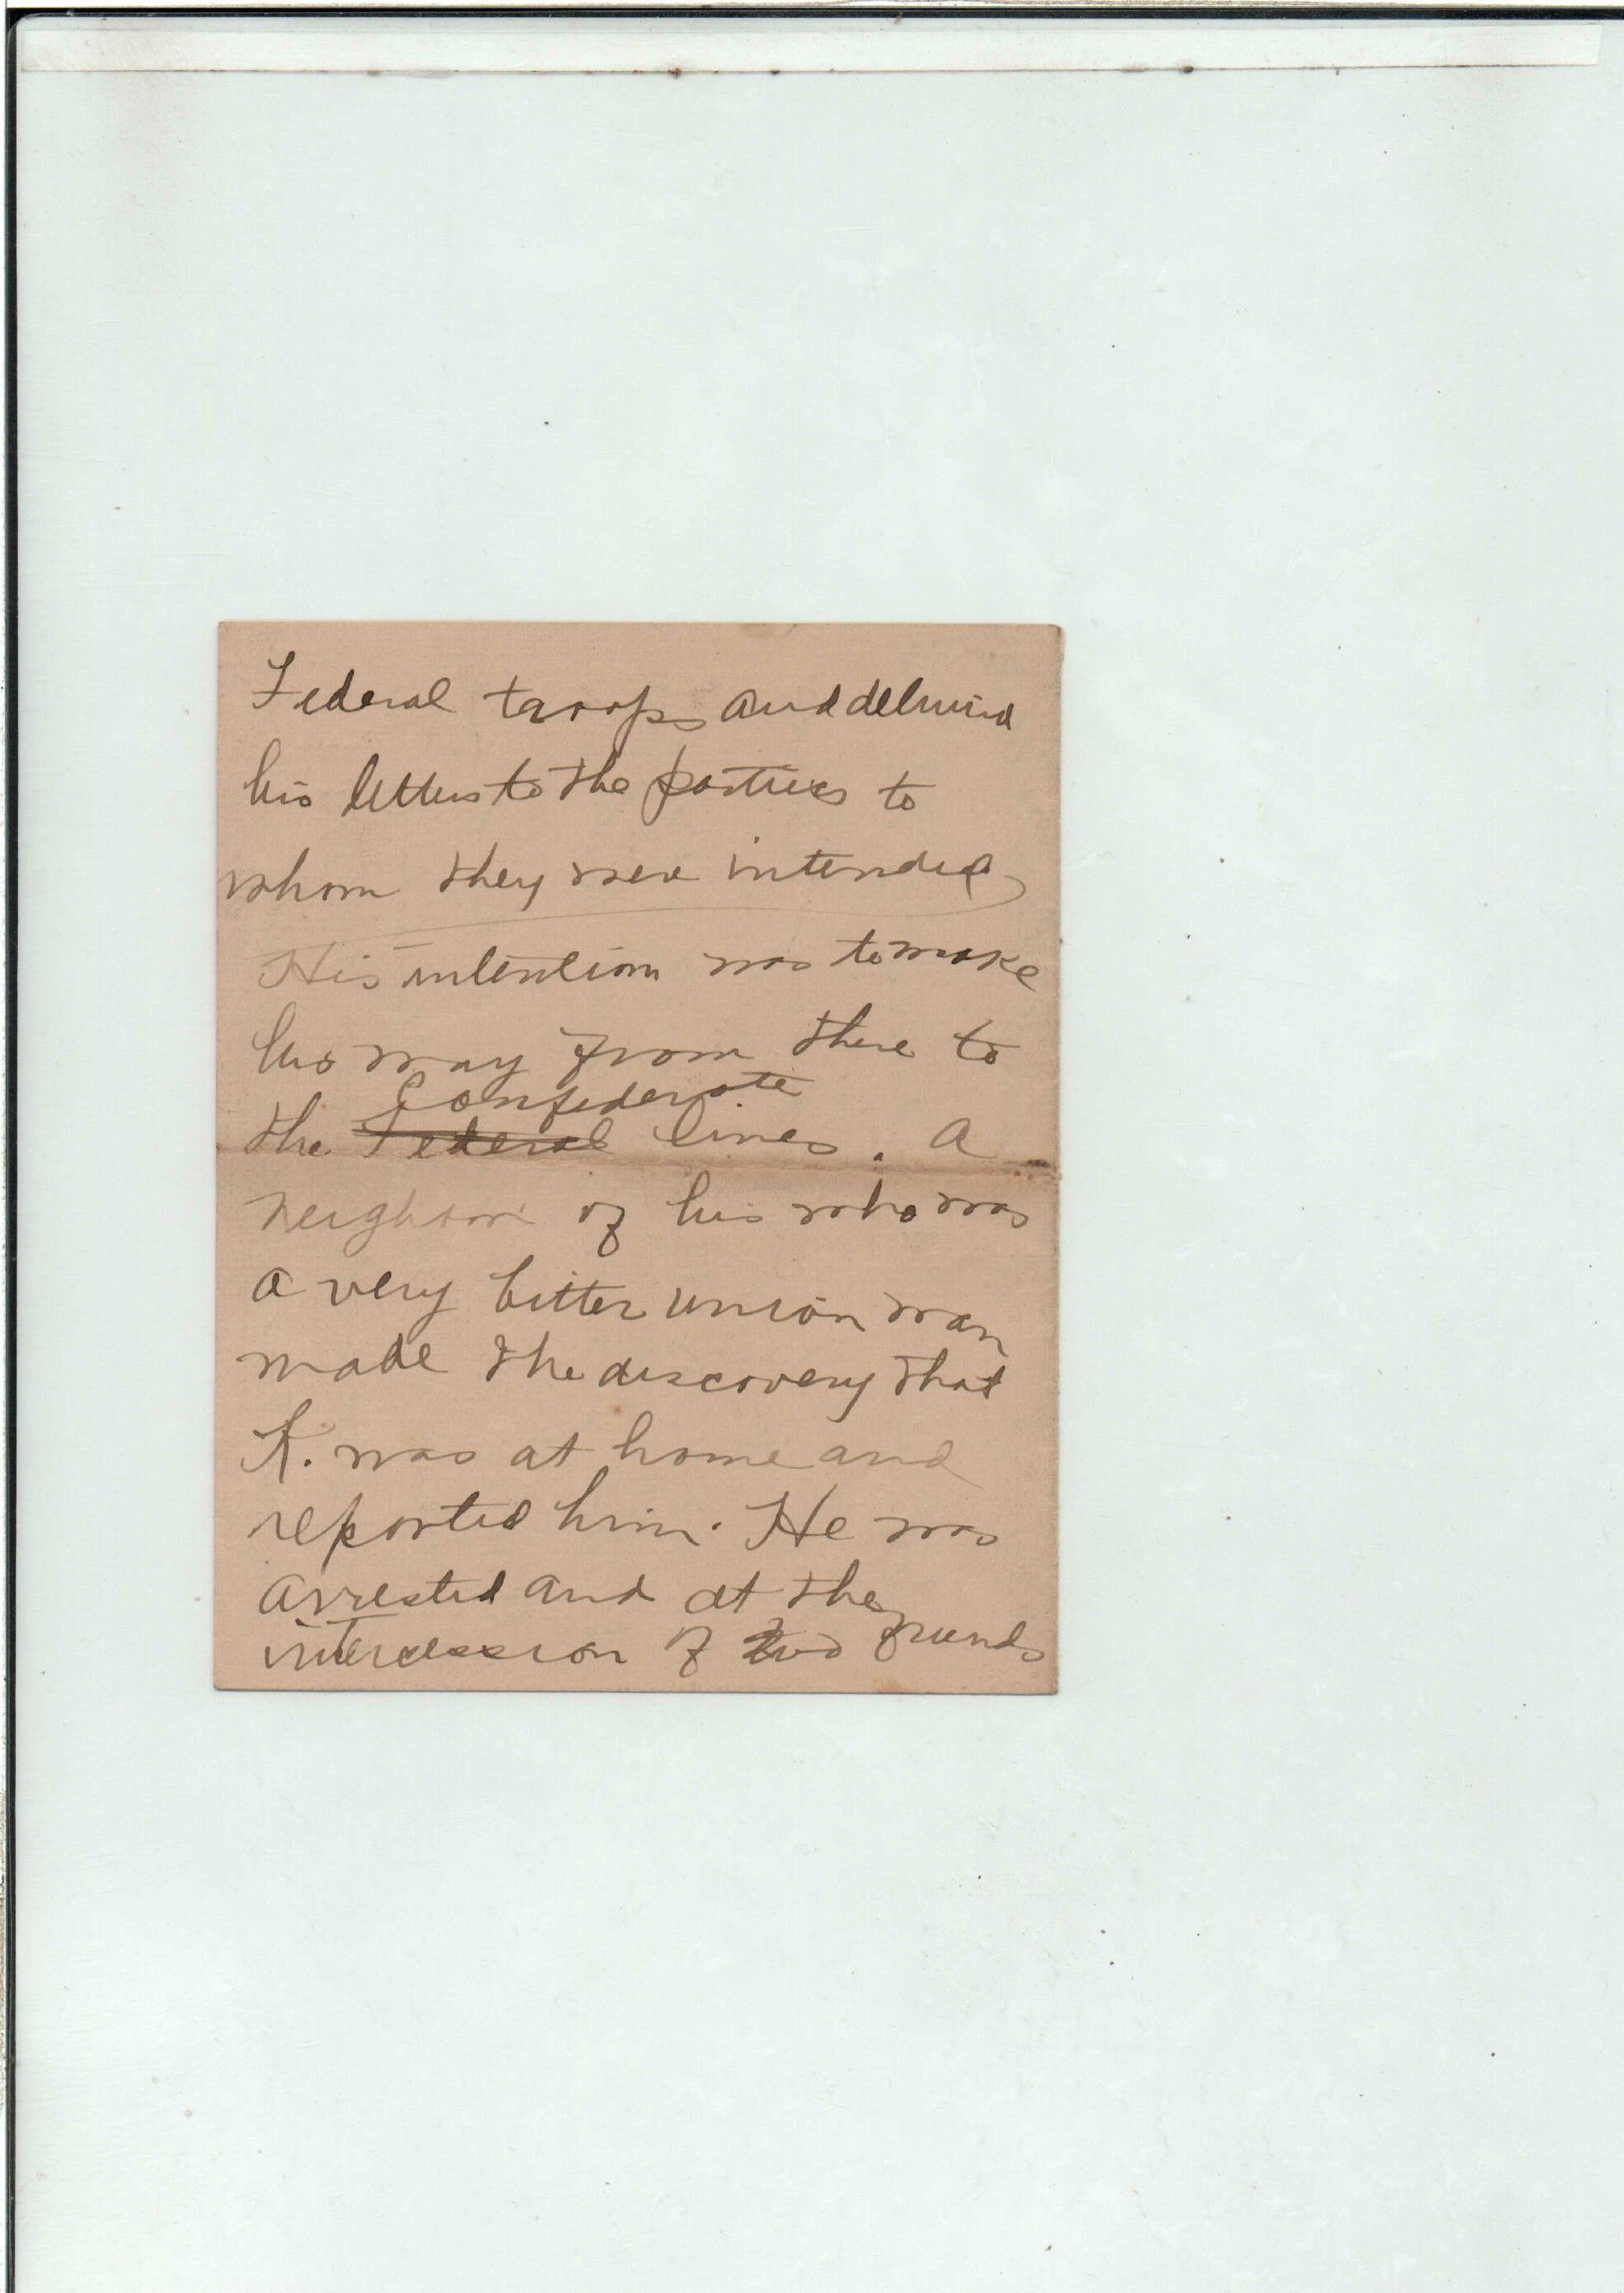 Federal troops and delivered
his letters to the parties to
whom they were intended,
His intention was to make
his way from there to
Confederate
the Federal lines. A
neighbor of his who was
a very bitter union man
made the discovery that
K. was at home and
reported him. He was
arrested and at the
intercession of friends